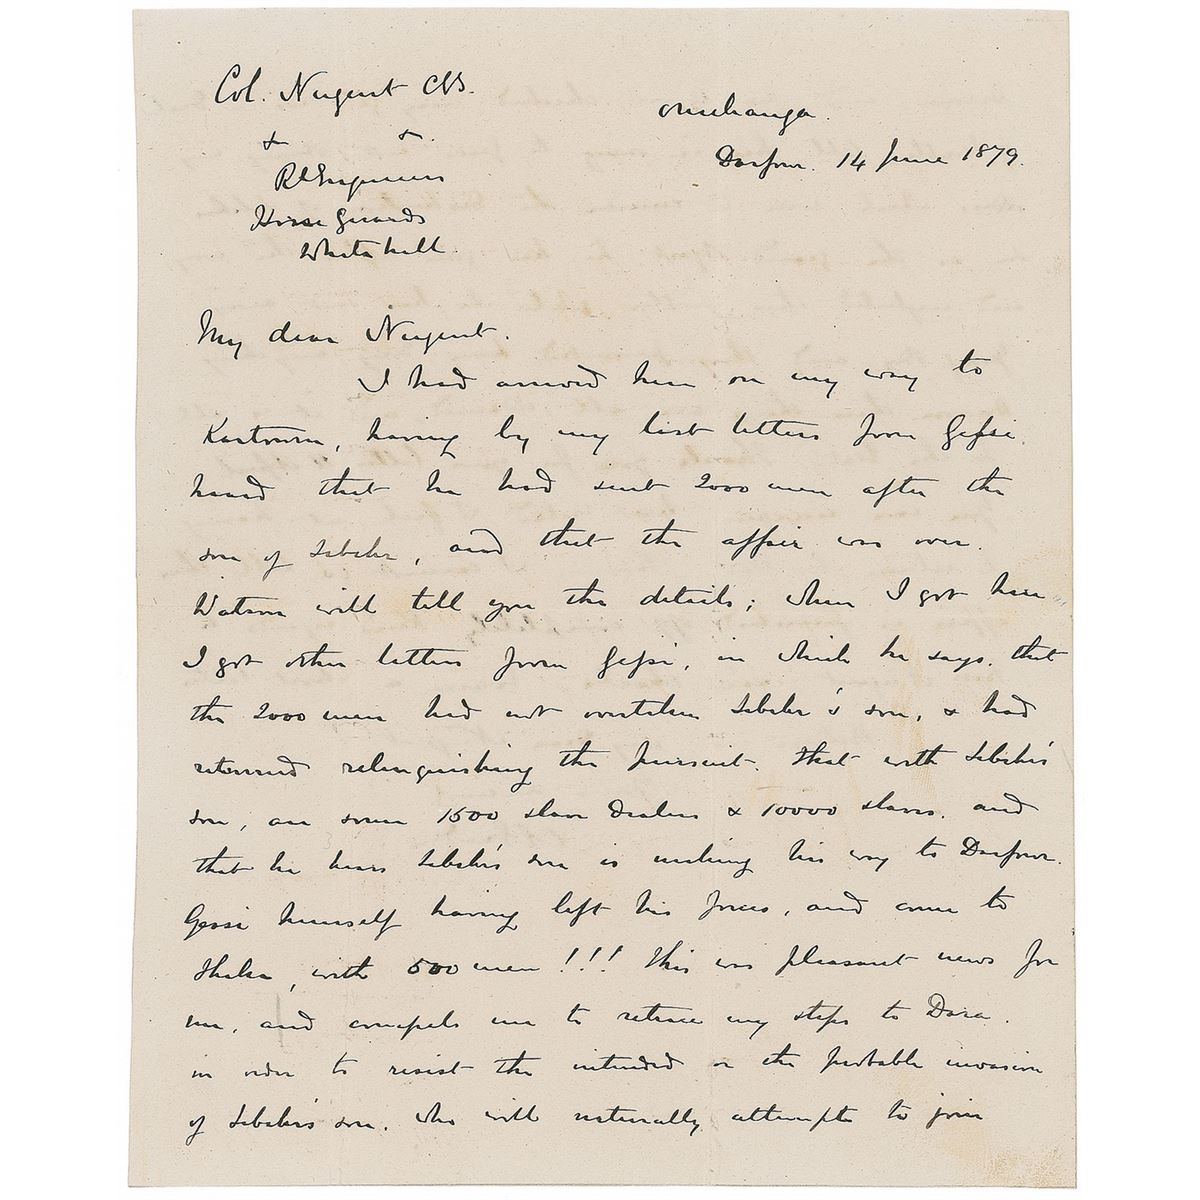 Col. Nugent CB.
Omchanga.
+ +
Darfour. 14 June 1879.
RlEngineers
Horse Guards
Whitehall.
My dear Nugent.
I had arrived here on my way to
Kartoum, having by my last letters from Gessi,
heard that he had sent 2000 men after the
son of Sebehr, and that the affair was over.
Watson will tell you the details; when I got here
I got other letters from Gessi, in which he says, that
the 2000 men had not overtaken Sebehr's son, & had
returned relinquishing the pursuit. That with Sebehr's
son, are some 1500 slave dealers & 10000 slaves. and
that he hears Sebehr's son is making his way to Darfour.
Gessi himself having left his forces, and come to
Shaka, with 500 men!!! This was pleasant news for
me, and compels me to retrace my steps to Dara.
in order to resist the intended or the probable invasion
of Sebehr's son. who will naturally attempt to join